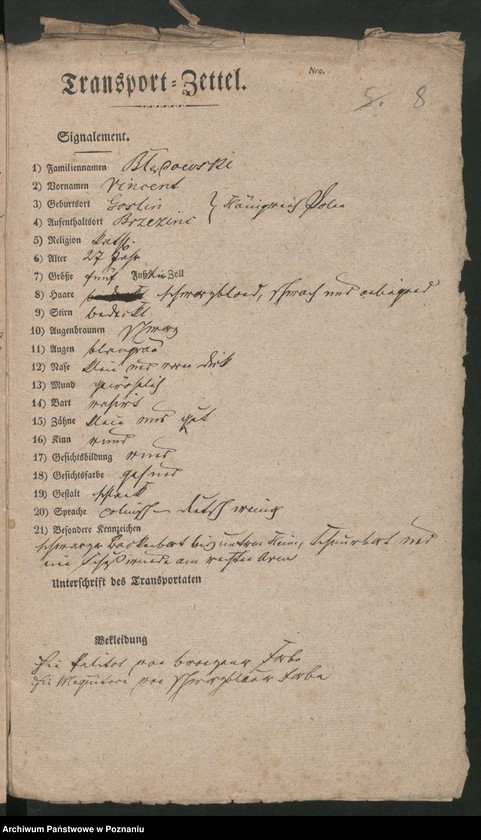 Nro.
Transport-Zettel.
S. 8
Signalement.
1) Familiennamen Błędowski
2) Vornamen Vincent
3) Geburtsort Gostin } Königreich Polen
4) Aufenthaltsort Brzezini
5) Religion kath.
6) Alter 27 Jahr
7) Größe fünf Fuß Zoll
8) Haare schwarzblond, schwach und
9) Stirn bedeckt
10) Augenbraunen schwarz
11) Augen blaugrau
12) Nase klein und vorn dick
13) Mund gewöhnlich
14) Bart rasirt
15) Zähne klein und gut
16) Kinn rund
17) Gesichtsbildung rund
18) Gesichtsfarbe gesund
19) Gestalt
20) Sprache polnisch deutsch wenig
21) Besondere Kennzeichen
schwarzer Backenbart unterm Kinn, Schnurbart und
eine Schußwunde am rechten Arm
Unterschrift des Transportaten
Bekleidung
Ein von Farbe
von schwarzblauer Farbe
Archiwum Państwowe w Poznaniu